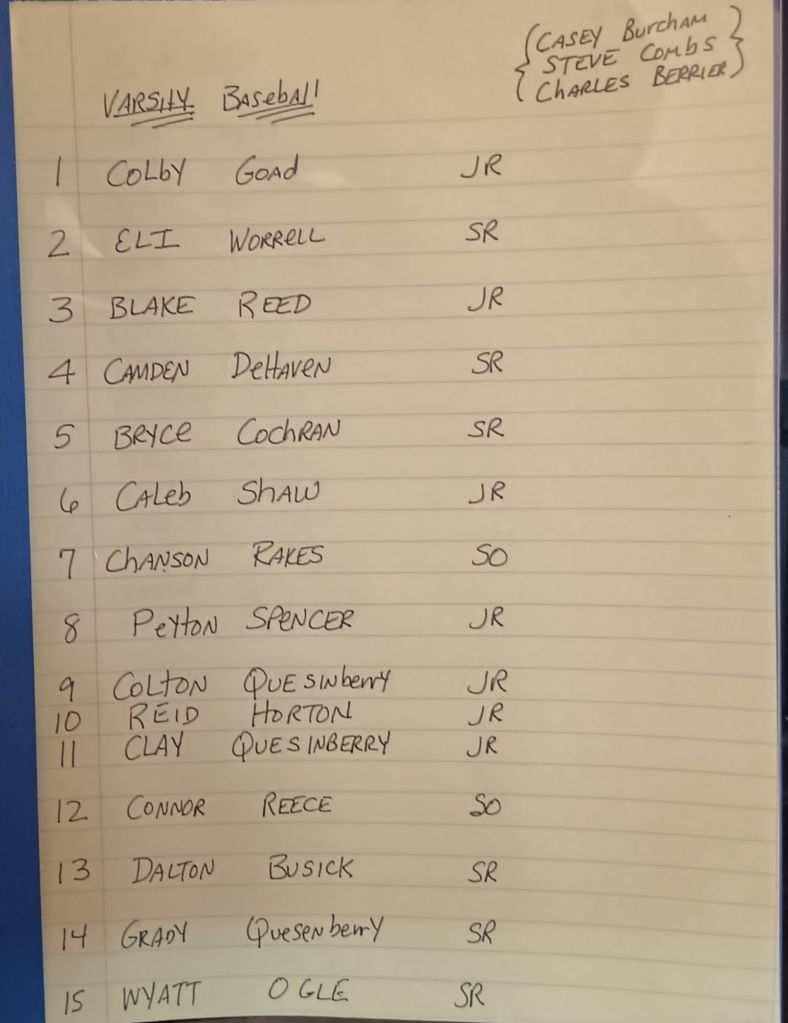 {CASEY Burcham
STEVE Combs
Charles BERRIER}
VARSITY BASEball
1 COLBY GOAD JR
2 ELI WORRELL SR
3 BLAKE REED JR
4 CAMDEN DeHAVEN SR
5 BRYCE COCHRAN SR
6 CALEB SHAW JR
7 CHANSON RAKES SO
8 PEYTON SPENCER JR
9 COLTON QUESINberry JR
10 REID HORTON JR
11 CLAY QUESINBERRY JR
12 CONNOR REECE SO
13 DALTON BUSICK SR
14 GRADY Quesenberry SR
15 WYATT OGLE SR